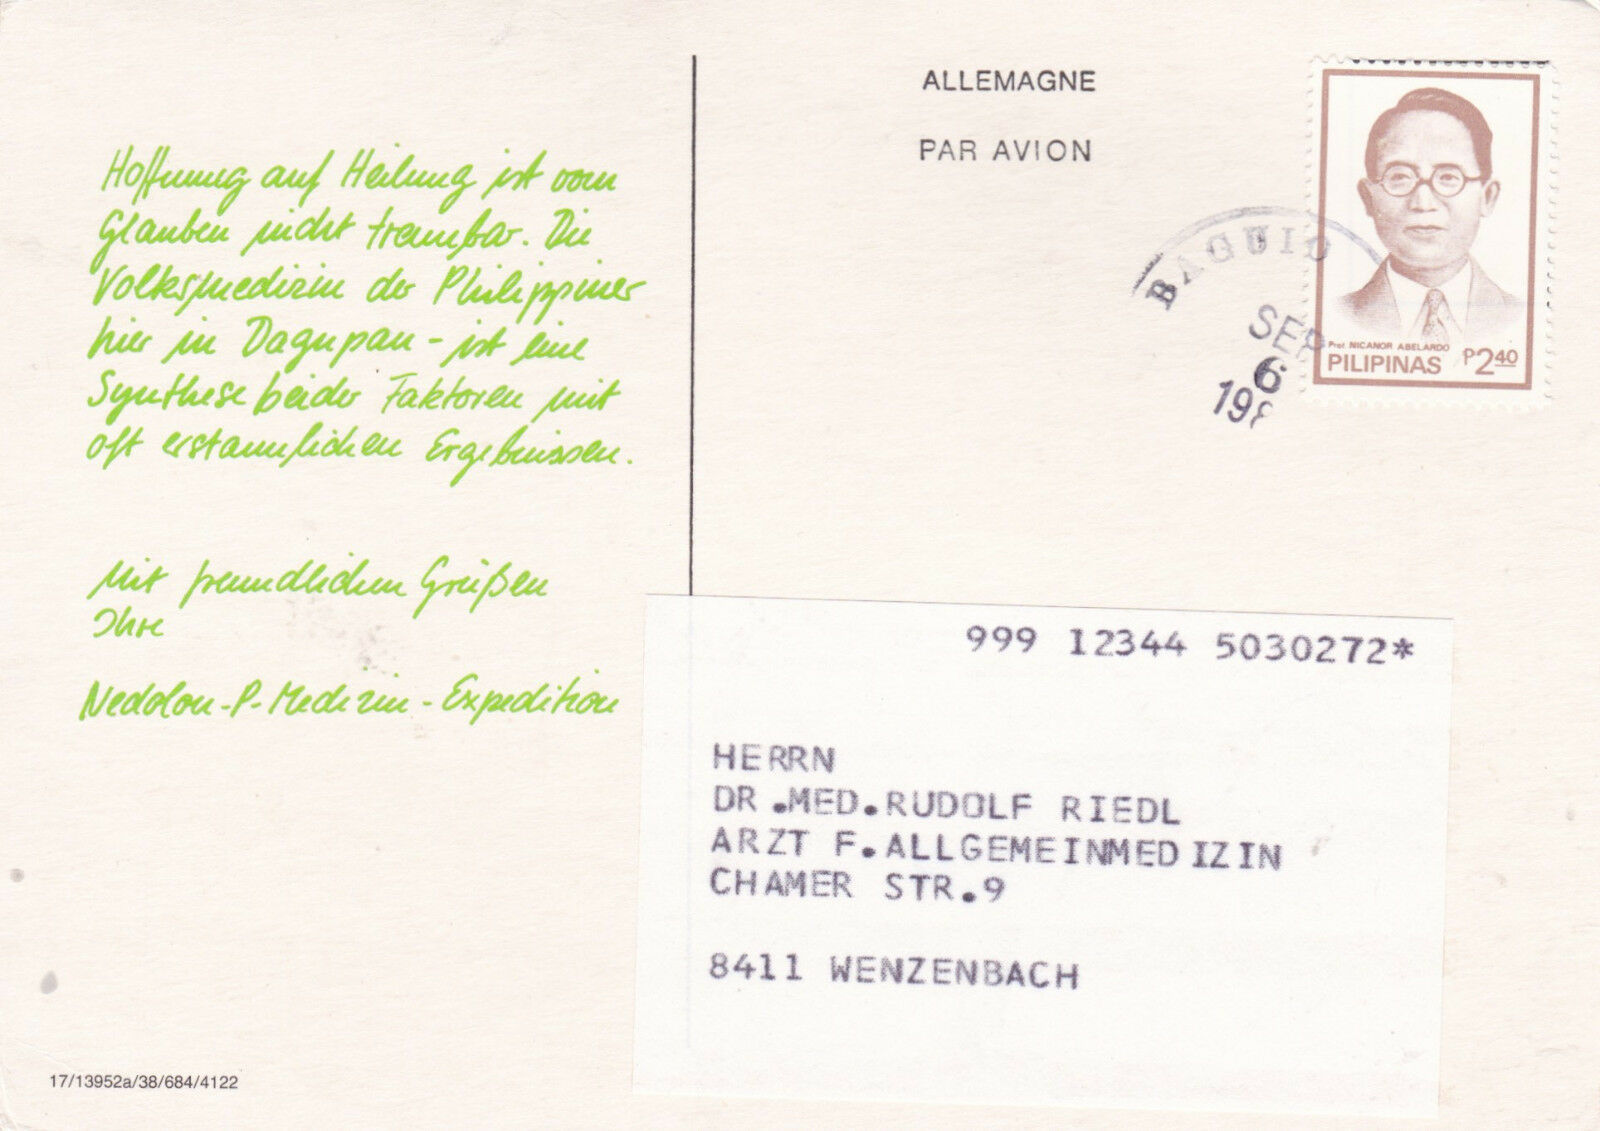 Hoffnung auf Heilung ist vom
Glauben nicht trennbar. Die
Volksmedizin der Philippiner
hier in Dagupan - ist eine
Synthese beider Faktoren mit
oft erstaunlichen Ergebnissen.
Mit freundlichen Grüßen
Ihre
Neddolon-P-Medizin-Expedition
17/13952a/38/684/4122
ALLEMAGNE
PAR AVION
BAGUIO
SEP
6
198
Prof. NICANOR ABELARDO
PILIPINAS P2.40
999 12344 5030272*
HERRN
DR.MED.RUDOLF RIEDL
ARZT F.ALLGEMEINMEDIZIN
CHAMER STR.9
8411 WENZENBACH